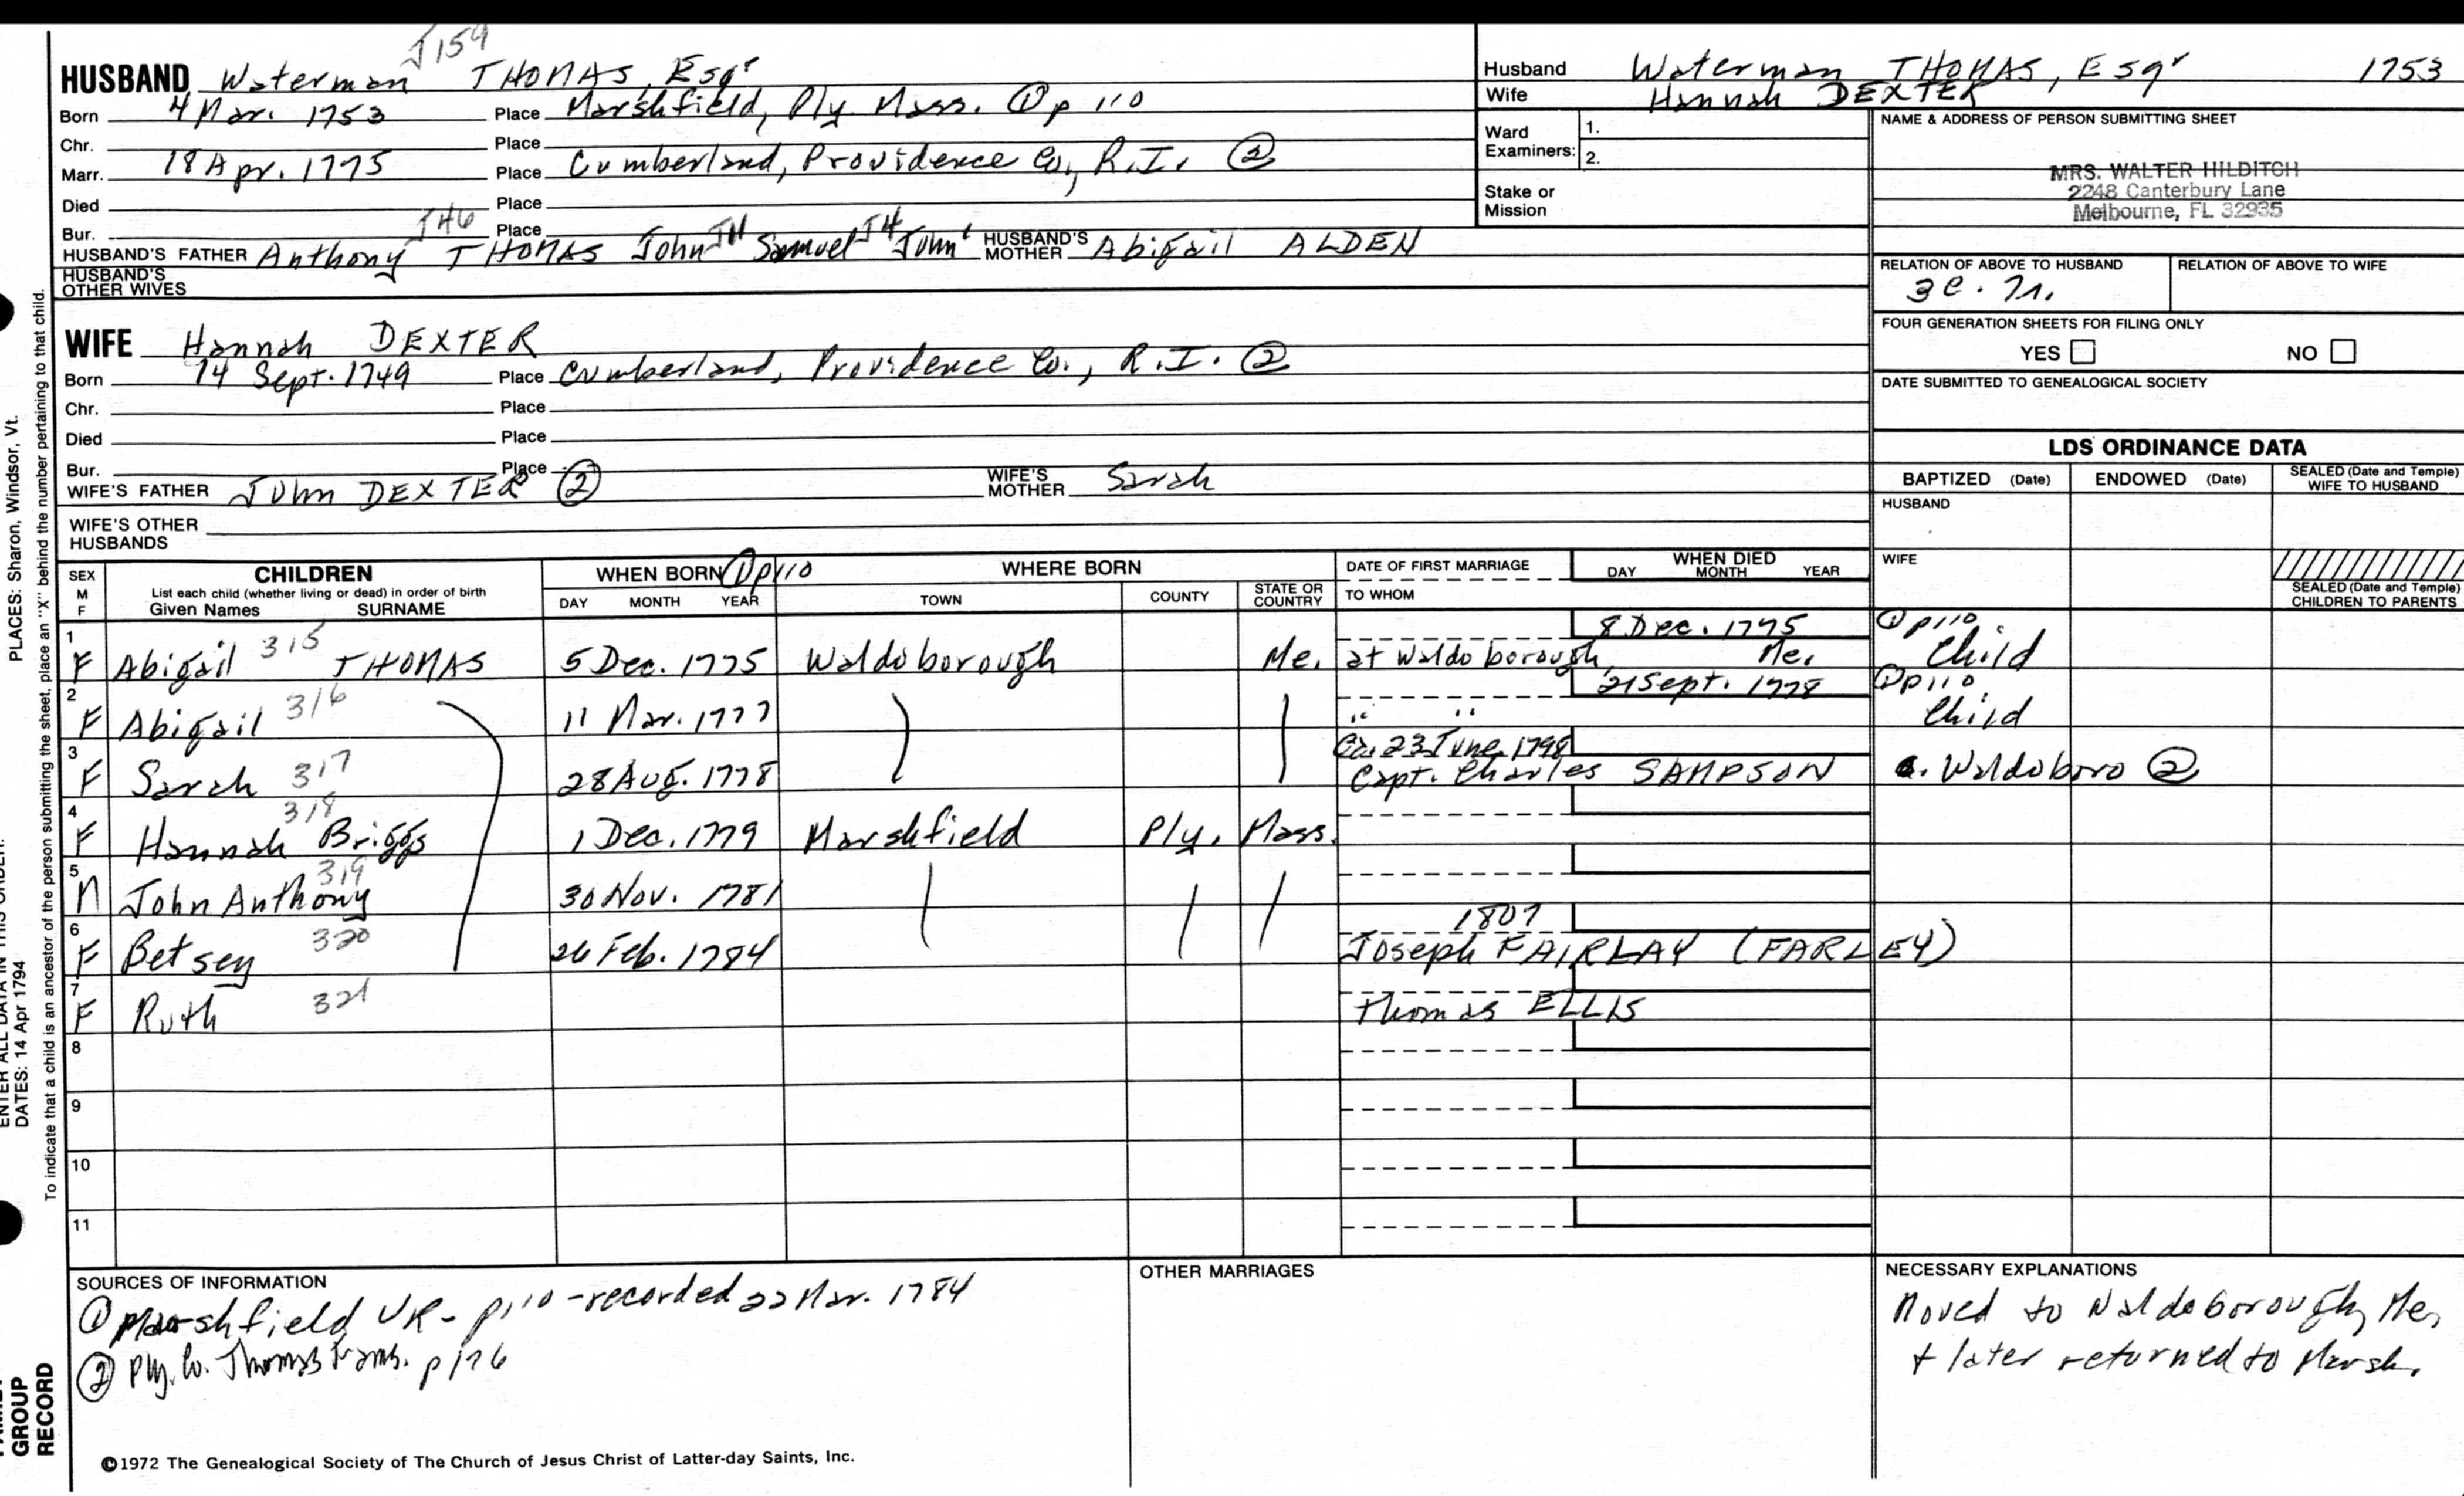 J159
HUSBAND Waterman THOMAS, Esqr
Born 4 Mar. 1753 Place Marshfield, Ply. Mass. ① p 110
Chr. Place
Marr. 18 Apr. 1775 Place Cumberland, Providence Co., R.I. ②
Died Place
Bur. Place
J46
HUSBAND'S FATHER Anthony THOMAS John Samuel John HUSBAND'S MOTHER Abigail ALDEN
HUSBAND'S OTHER WIVES
WIFE Hannah DEXTER
Born 14 Sept. 1749 Place Cumberland, Providence Co., R.I. ②
Chr. Place
Died Place
Bur. Place
WIFE'S FATHER John DEXTER ② WIFE'S MOTHER Sarah
WIFE'S OTHER HUSBANDS
Husband Waterman THOMAS, Esqr 1753
Wife Hannah DEXTER
Ward Examiners: 1.
2.
Stake or Mission
NAME & ADDRESS OF PERSON SUBMITTING SHEET
MRS. WALTER HILDITCH
2248 Canterbury Lane
Melbourne, FL 32935
RELATION OF ABOVE TO HUSBAND RELATION OF ABOVE TO WIFE
FOUR GENERATION SHEETS FOR FILING ONLY
YES NO
DATE SUBMITTED TO GENEALOGICAL SOCIETY
LDS ORDINANCE DATA
BAPTIZED (Date) ENDOWED (Date) SEALED (Date and Temple) WIFE TO HUSBAND
HUSBAND
WIFE
SEALED (Date and Temple) CHILDREN TO PARENTS
SEX M F CHILDREN List each child (whether living or dead) in order of birth Given Names SURNAME
WHEN BORN ① p110 DAY MONTH YEAR
WHERE BORN TOWN COUNTY STATE OR COUNTRY
DATE OF FIRST MARRIAGE TO WHOM
WHEN DIED DAY MONTH YEAR
1 8 Dec. 1775 ① p110
F Abigail 315 THOMAS 5 Dec. 1775 Waldoborough Me. at Waldoborough, Me. Child
2 21 Sept. 1778 ① p110
F Abigail 316 11 Mar. 1777 " " Child
3 Ca. 23 June 1798
F Sarah 317 28 Aug. 1778 Capt. Charles SAMPSON Waldoboro ②
4
F Hannah Briggs 318 1 Dec. 1779 Marshfield Ply. Mass.
5
M John Anthony 319 30 Nov. 1781
6 1807
F Betsey 320 26 Feb. 1784 Joseph FAIRLAY (FARLEY)
7
F Ruth 321 Thomas ELLIS
8
9
10
11
SOURCES OF INFORMATION
① Marshfield VR - p110 - recorded 22 Mar. 1784
② Ply. Co. Thomas Fams. p176
OTHER MARRIAGES
NECESSARY EXPLANATIONS
Moved to Waldoborough, Me,
+ later returned to Marsh.
©1972 The Genealogical Society of The Church of Jesus Christ of Latter-day Saints, Inc.
PLACES: Sharon, Windsor, Vt.
DATES: 14 Apr 1794
To indicate that a child is an ancestor of the person submitting the sheet, place an "X" behind the number pertaining to that child.
GROUP
RECORD